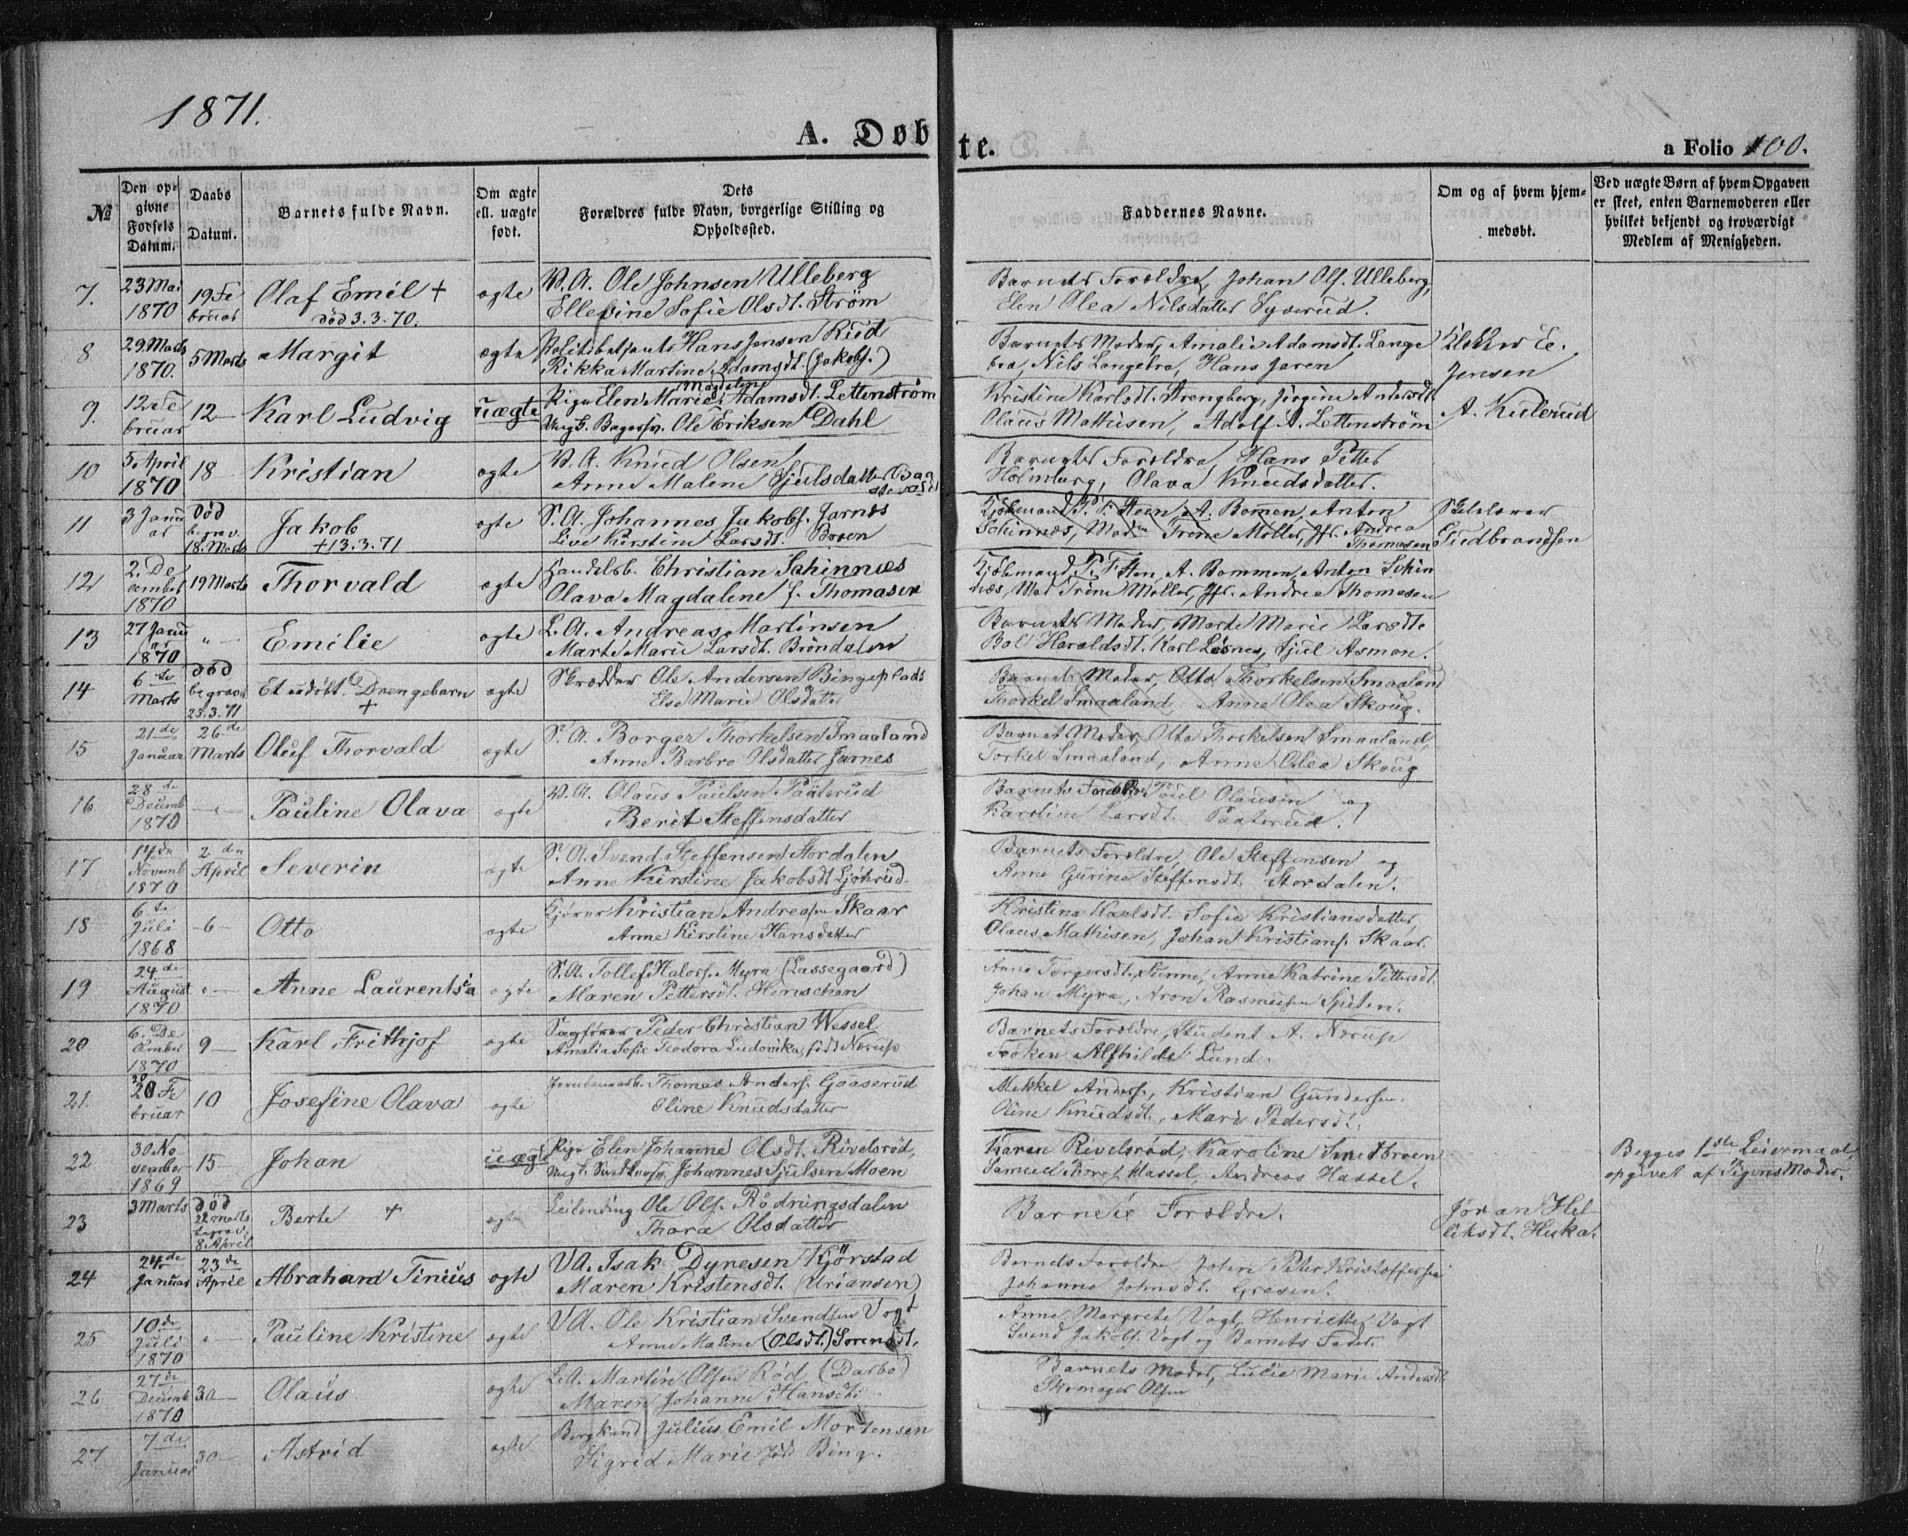 1871.
A. Døbte.
a Folio 100.
№
Den opgivne Fødsels Datum.
Daabs Datum.
Barnets fulde Navn.
Om ægte ell. uægte født.
Dets Forældres fulde Navn, borgerlige Stilling og Opholdssted.
Faddernes Navne.
Om og af hvem hjemmedøbt.
Ved uægte Børn af hvem Opgaven er skeet, enten Barnemoderen eller hvilket bekjendt og troværdigt Medlem af Menigheden.
7. 23 Mai 1870 19. Februar Olaf Emil + død 3.3.70. ægte V.A. Ole Johnsen Ulleberg
Ellevine Sofie Olsdt. Strøm
Barnets Forældre, Johan Ols. Ulleberg,
Elen Olea Nilsdatter Syverud.
8 29. Marts 1870. 5 Marts Margit ægte Politibetjent Hans Jensen Riid
Rikka Martine Adamsdt. (Jakobs.)
Barnets Moder, Amalie Adamsdt. Langebra, Nils Langebra, Hans Jaren
Klokker E. Jensen
9. 12. Februar 12 — Karl Ludvig uægte Pige Elen Marie Magdeline Adamsdt. Lettenstrøm
Ungk. Bagersv. Ole Eriksen Dahl
Kristine Karlsdt. Strengberg, Jørgine Andersdt.
Olaus Mathisen, Adolf A. Lettenstrøm
A. Kulerud
10 5. April 1870 18 — Kristian ægte V.A. Knud Olsen
Anne Malene Gjulsdatter
Barnets Forældre, Hans Petter
Holmberg, Olava Knudsdatter.
11 3 Januar Død begrav. 18. Marts Jakob +13.3.71 ægte S.A. Johannes Jakobs. Jarnes
Live Kirstine Larsdt. Broen
Kjøbmand P. F. Steen, A. Bomen, Anton
Schinnæs, Mad. Trine Møller, Jfr. Andrea Thomasen
12 2. December 1870 19 Marts Thorvald ægte Handelsb. Christian Schinnæs
Olava Magdalene f. Thomasen
Kjøbmand P. F. Sten, A. Bommen, Anton Schinnæs, Mad Trine Møller, Jfr. Andrea Thomesen
13 27 Januar 1870 " — Emilie ægte L.A. Andreas Martinsen
Mart Marie Larsdt. Brøndalen
Barnets Moder, Marte Marie Larsdt.
Bol Haroldsdt. Karl Løsnes, Gjul Asmon.
14 6te Marts død begravet 25.3.71 Et udøbt Drengebarn + ægte Skrædder Ole Andersen Bingeplads
Else Marie Olsdatter
Barnets Moder, Otto Thorkelsen Smaaland
Thorkel Smaaland, Anne Olea Skoug.
15 21de Januar 26de Marts Oluf Thorvald ægte S.A. Borger Thorkelsen Smaaland
Anne Barbro Olsdatter Jarnes
Barnets Moder, Otto Thorkelsen Smaaland,
Torkel Smaaland, Anne Olea Skoug
16 28de Decemb 1870 — " — Pauline Olava ægte V.A. Olaus Paulsen Paaterud
Berit Steffensdatter
Barnets Forældre, Poul Olausen og
Karoline Larsdt. Paaterud.
17 14de Novemb 1870 2den April Severin ægte S.A. Svend Steffensen Stordalen
Anne Kirstine Jakobsdt.
Barnets Forældre, Ole Steffensen og
Anne Gurine Steffensdt. Stordalen.
18 6te Juli 1868 — 6 — Otto ægte Kjører Kristian Andreasen Skaar
Anne Kirstine Hansdatter
Kristine Karlsdt. Sofie Kristiansdatter,
Olaus Mathisen, Johan Kristians. Skaar.
19 24de August 1870 " — Anne Laurentsia ægte S.A. Tollef Halvors. Myra (Lassegaard)
Maren Pettersdt. Hinschen
Anne Torgersdt. Sunne, Anne Katrine Pettersdt.
Johan Myra, Aron Rasmussen Spiten.
20 6. December 1870 9 — Karl Frithjof ægte Sagfører Peder Christian Wessel
Amalia Sofie Teodora Ludovika, født Nærup
Barnets Forældre, Student A. Nærup
Frøken Alfhilde Lund.
21. 20 Februar 10 Josefine Olava ægte Jernbanearb. Thomas Anders. Gaaserud
Oline Knudsdatter
Mekkel Anders., Kristian Gundersen.
Oline Knudsdt., Mari Pedersdt.
22 30. November 1869 15 — Johan uægte Pige Elen Johanne Olsdt. Rivelsrød,
Ungk. Johannes Gjulsen Moen
Karen Rivelsrød, Karoline Smedbroen
Hassel, Andreas Hassel.
Begges 1ste Leiermaal, opgivet af Pigens Moder.
23 3 Marts død 22 marts begrav. 8 April Berte + ægte Leilending Ole Ols. Rødningsdalen
Thora Olsdatter
Barnets Forældre.
Jøran Helliksdt. Huka.
24 24de Januar 23de April Abraham Tinius ægte V.A. Isak Dynesen Kjørstad
Maren Kristensdt. (Uriansen)
Barnets Forældre, John Peter Kristoffersen
Johanne Johnsdt. Grosen.
25 10de Juli 1870 " — Pauline Kristine ægte V.A. Ole Kristian Svendsen Vogt
Anne Malene (Olsdt.) Sørensdt.
Anne Margrete Vogt, Henriette Vogt
Svend Jakobs. Vogt og Barnets Fader.
26 27de Decemb 1870 30 — Olaus ægte L.A. Martin Olsen Rød (Darbo)
Maren Johanne Hansdt.
Barnets Moder, Lulie Marie Andersdt
Skomager Olsen
27 7de Januar 30 — Astrid ægte Bergkand. Julius Emil Mortensen
Sigrid Marie født Bing.